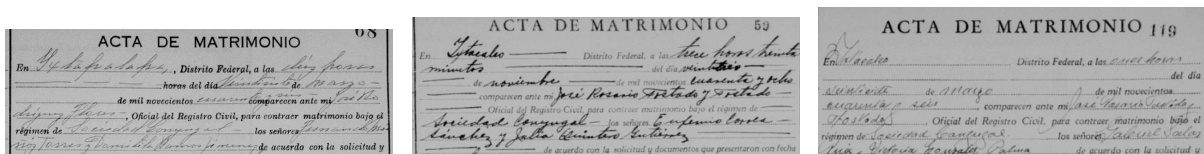 ACTA DE MATRIMONIO 68
En Ixtapalapa, Distrito Federal, a las diez horas
horas del día veintisiete de marzo
de mil novecientos cuarenta y comparecen ante mi José Ro
, Oficial del Registro Civil, para contraer matrimonio bajo el
régimen de Sociedad Conyugal los señores
Torres y Ramos Jimenez de acuerdo con la solicitud y
ACTA DE MATRIMONIO 59
En Iztacalco Distrito Federal, a las trece horas treinta
minutos del día veintitrés
de noviembre de mil novecientos cuarenta y ocho
comparecen ante mi José Rosario Tostado y Tostado
Oficial del Registro Civil, para contraer matrimonio bajo el régimen de
Sociedad Conyugal los señores Eufemio Correa
Sánchez y Julia Quintero Gutiérrez
de acuerdo con la solicitud y documentos que presentaron con fecha
ACTA DE MATRIMONIO 119
En Iztacalco Distrito Federal, a las once horas
del día
veintisiete de marzo de mil novecientos
cuarenta y seis comparecen ante mi José Rosario Tostado y
Tostado, Oficial del Registro Civil, para contraer matrimonio bajo el
régimen de Sociedad Conyugal los señores Gabriel Salas
y Victoria González Palma de acuerdo con la solicitud y